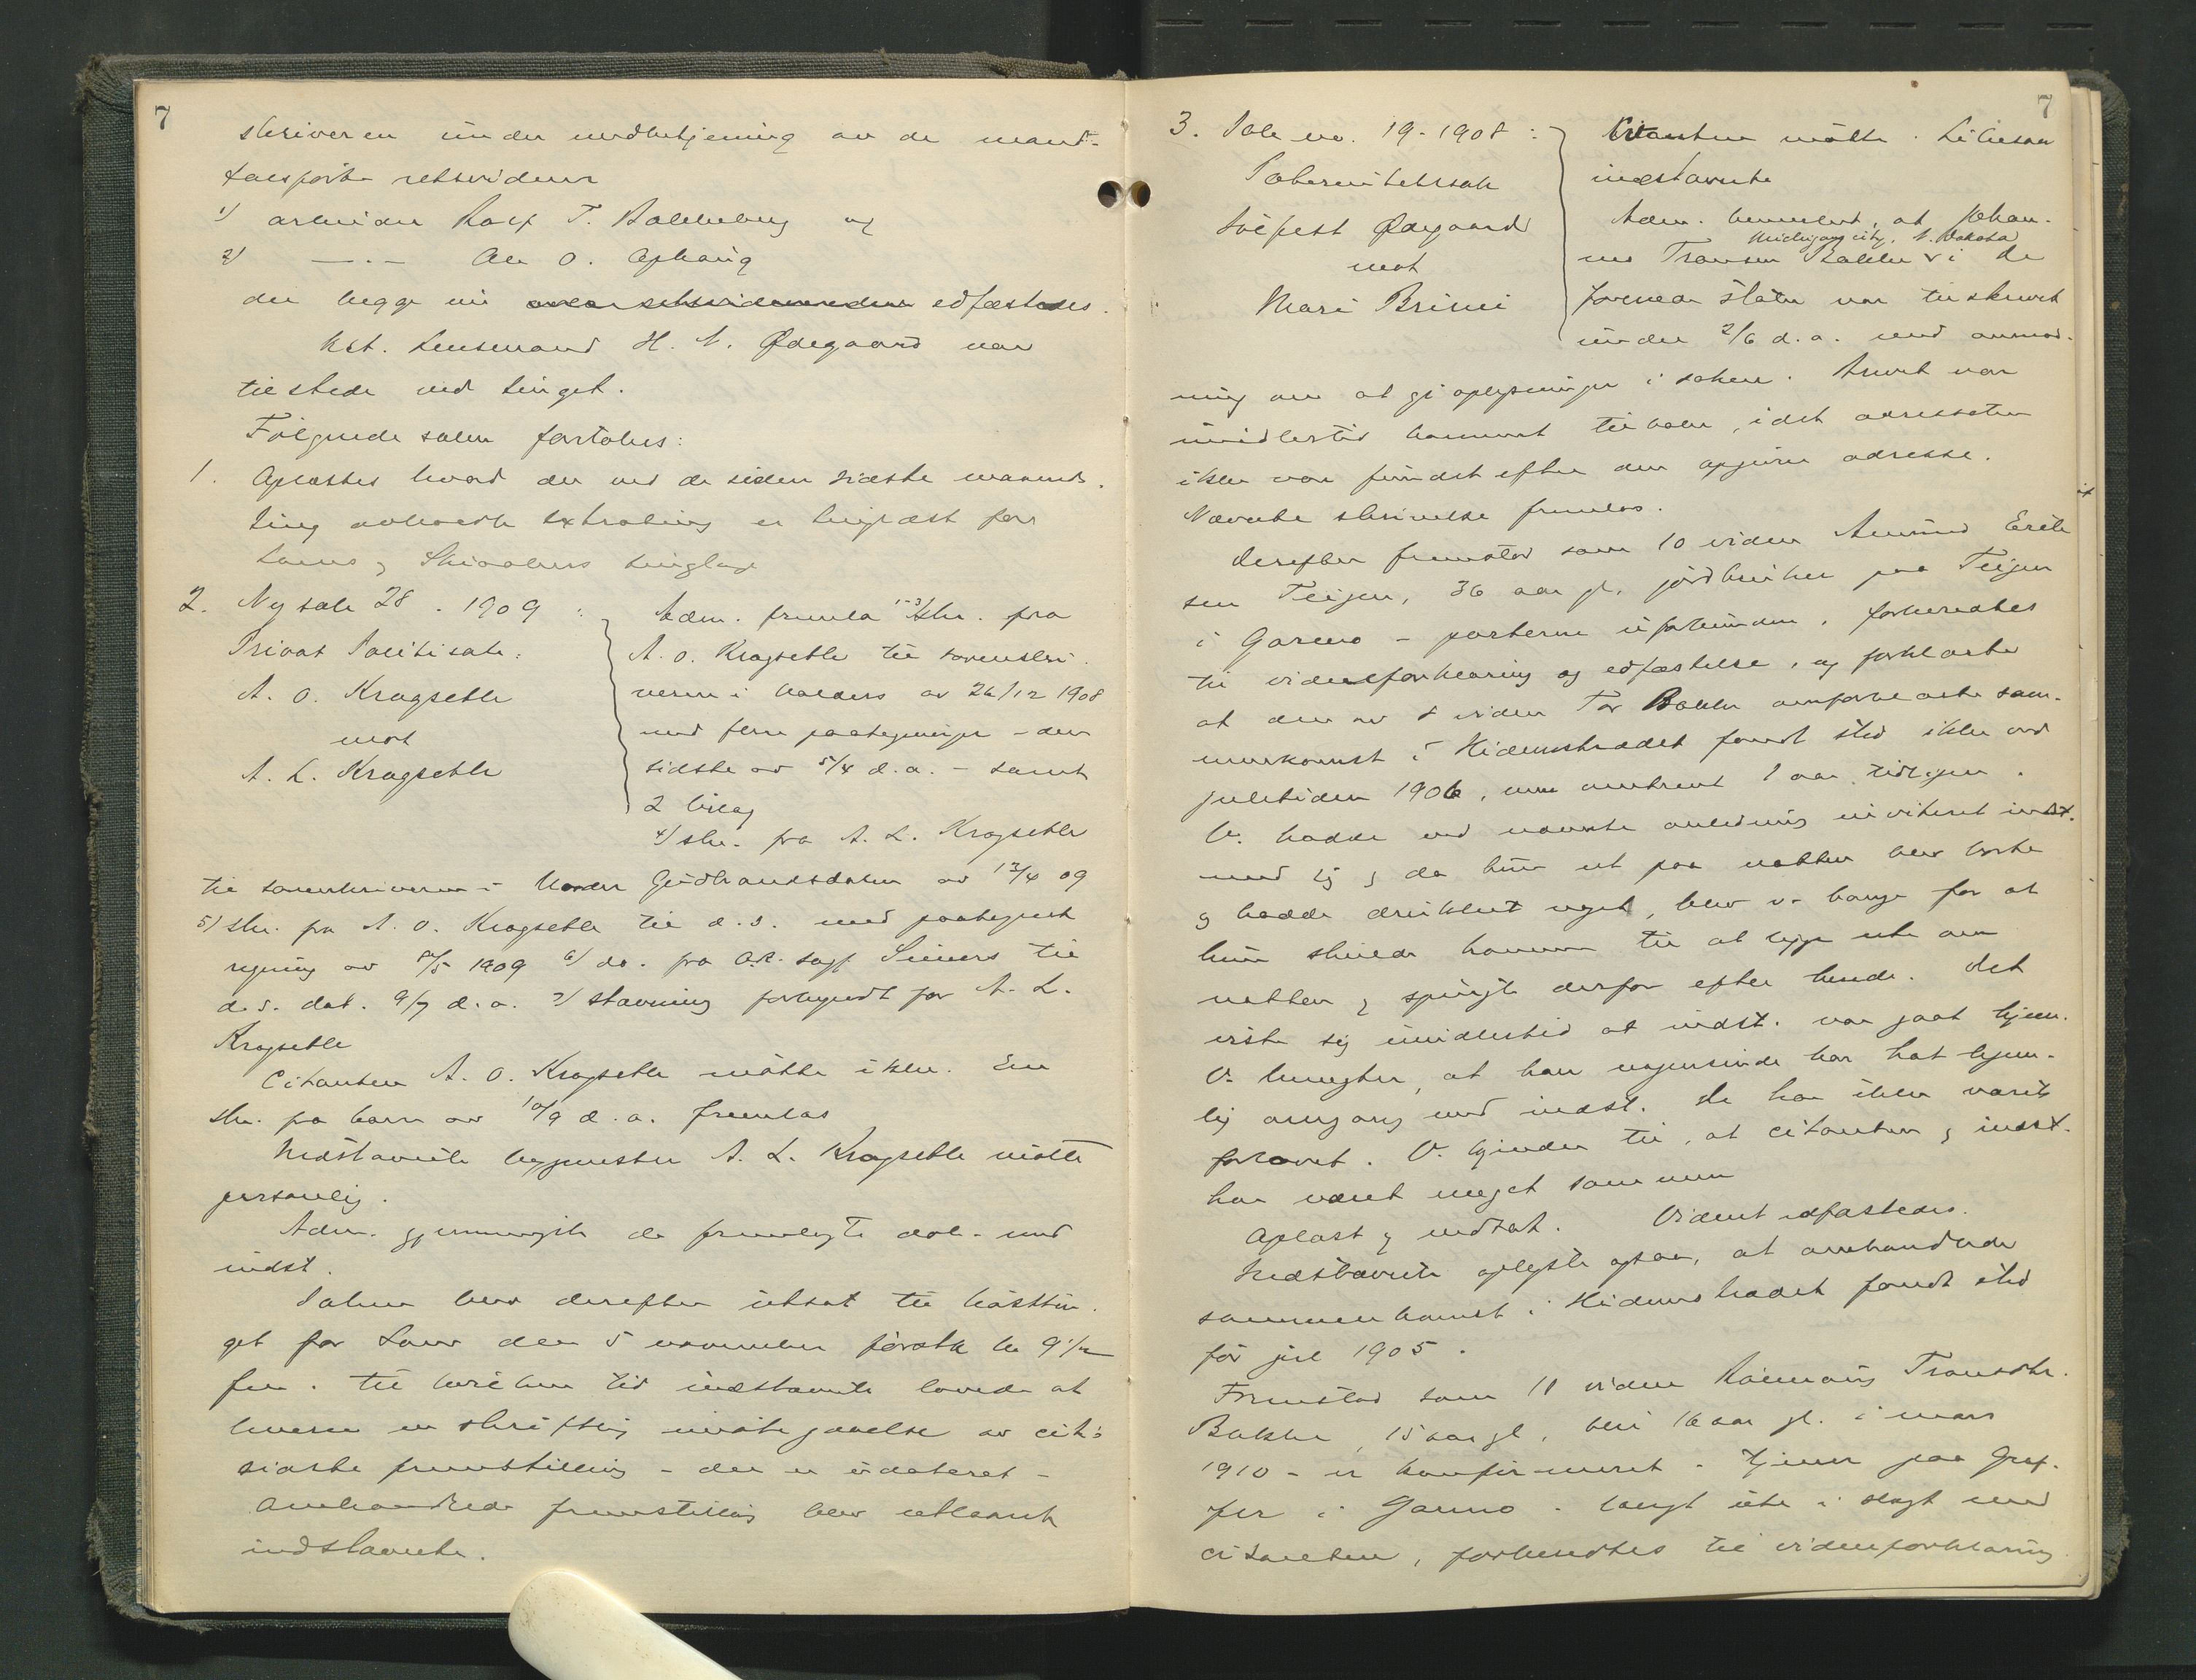 7
skriveren under medbetjening av de mand-
talsførte retsvidner
1) arbeider Rolf T. Bakkeberg og
2) —..— Ole O. Ophaug
der begge nu edfæstedes.
Kst. Lensmand H. N. Ødegaard var
tilstede ved tinget.
Følgende saker foretokes:
1. Oplæstes hvad der ved de siden sidste maaneds-
ting avholdte extrating er tinglæst for
Loms og Skiaakers tinglag
2. Ny sak 28 - 1909 :
Privat Politisak:
A. O. Kragsetle
mot
A. L. Kragsetle
Adm. fremla 1-3/ skr. fra
A. O. Kragsetle til sorenskri-
veren i Valders av 26/12 1908
med flere paategninger - den
sidste av 5/4 d.a. - samt
2 bilag
4/ skr. fra A. L. Kragsetle
til sorenskriveren i Nordre Gudbrandsdalen av 13/4 09
5) skr. fra A. O. Kragsetle til d.s. med paategnet
regning av 1909 6/ do. fra O.R. sagf. til
d.s. dat. 9/7 d.a. 7/ stævning forkyndt for A. L.
Kragsetle
Citanten A. O. Kragsetle møtte ikke. En
skr. fra ham av 10/9 d.a. fremlas
Indstævnte bygmester A. L. Kragsetle møtte
personlig.
Adm. gjennemgik de fremlagte dok. med
indst.
Saken blev derefter utsat til høsttin-
get for Lom den 5 november førstk. kl 9 1/2
fm. til hvilken tid indstævnte lovede at
levere en skriftlig imøtegaaelse av cit.s
sidste fremstilling - den er udateret -
Omhandlede fremstilling blev utlaant
indstævnte.
7
3. Sak no. 19 - 1908 :
Paternitetssak
Sølfest Ødegaard
mot
Mari Brimi
Citanten møtte. Likesaa
indstævnte
Adm. bemerket, at Johan-
Michigan city, N. Dakota
nes Transen Bakke v i de
forenede stater var tilskrevet
under 2/6 d.a. med anmod-
ning om at gi oplysninger i saken. Brevet var
imidlertid kommet tilbake, idet adressaten
ikke var fundet efter den opgivne adresse.
Nævnte skrivelse fremlas.
Derefter fremstod som 10 vidne Amund Erik-
sen Teigen, 36 aar gl, jordbruker paa Teigen
i Garmo - parterne uforbunden, formanedes
til vidneforklaring og edfæstelse, og forklarte
at den av 8 vidne Tor Bakke omforklarte sam-
menkomst i Kidernstradet fandt sted ikke ved
juletiden 1906, men omtrent 1 aar tidligere.
V. hadde ved nævnte anledning inviteret indst.
med sig og da hun ut paa natten blev borte
og hadde drukket noget, blev v. bange for at
hun skulde komme til at ligge ute om
natten og sprang derfor efter hende. Det
viste sig imidlertid at indst. var gaat hjem.
V. benegter, at han nogensinde har hat legem-
lig omgang med indst. De har ikke været
forlovet. V. kjender til, at citanten og indst.
har været meget sammen
Oplæst og vedtat. Vidnet edfæstedes.
Indstævnte oplyste ogsaa, at omhandlede
sammenkomst i fandt sted
før jul 1905.
Fremstod som 11 vidne Transdtr.
Bakke, 15 aar gl, blir 16 aar gl. i mars
1910 - er konfirmeret - tjener paa Gref-
fer i Garmo - langt ute i slegt med
citanten, formanedtes til vidneforklaring